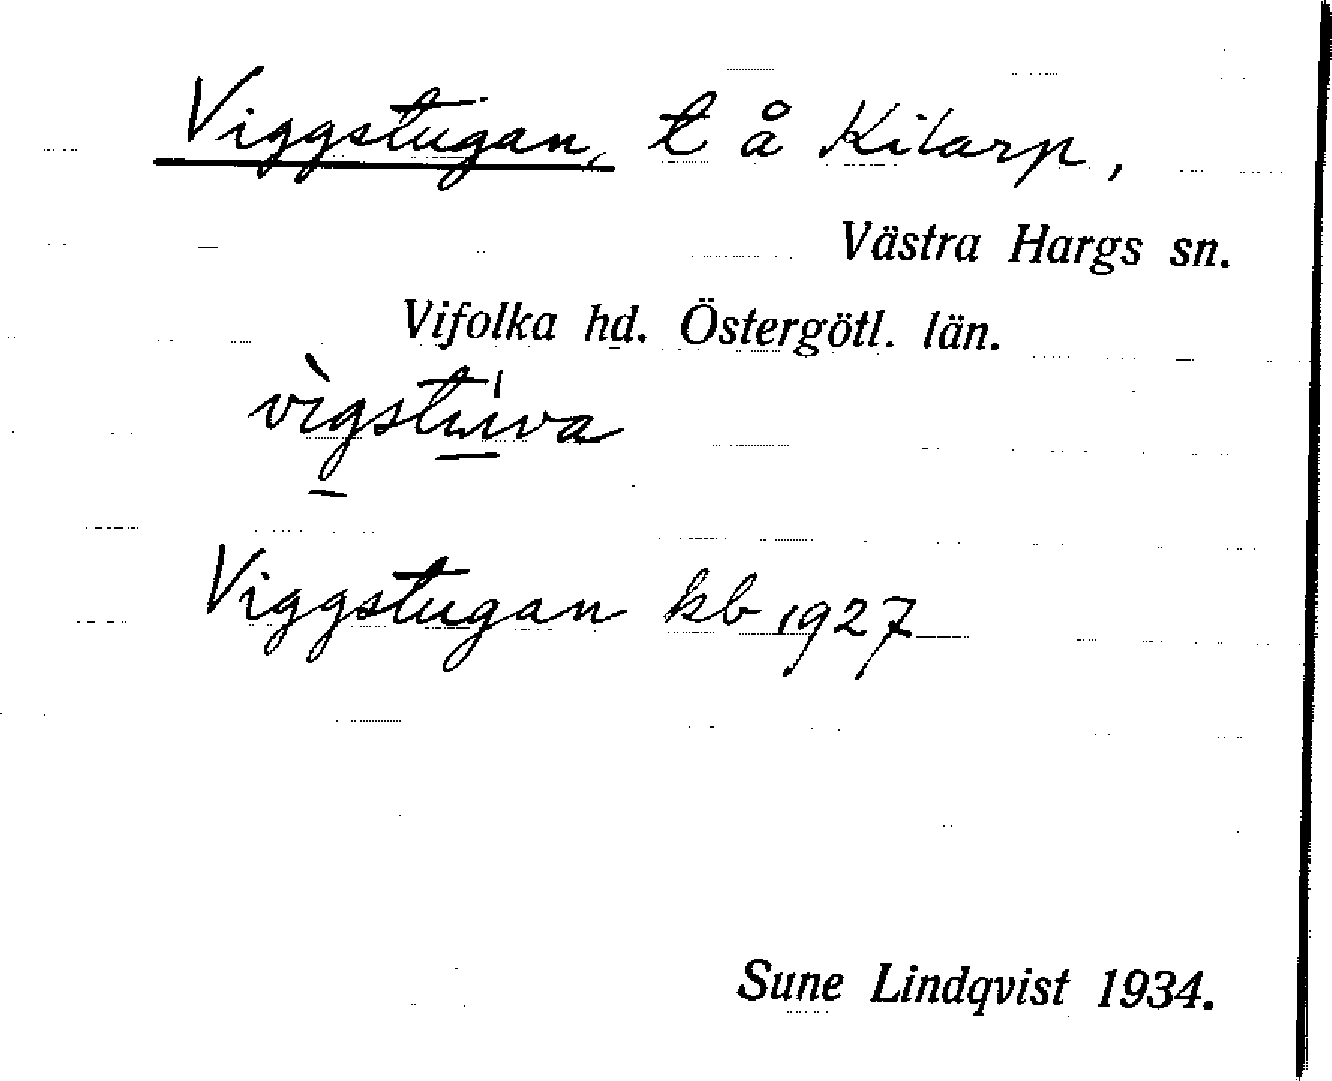 Viggstugan, t å Kilarp,
Västra Hargs sn.
Vifolka hd. Östergötl. län.
vìgstúva
Viggstugan kb 1927
Sune Lindqvist 1934.